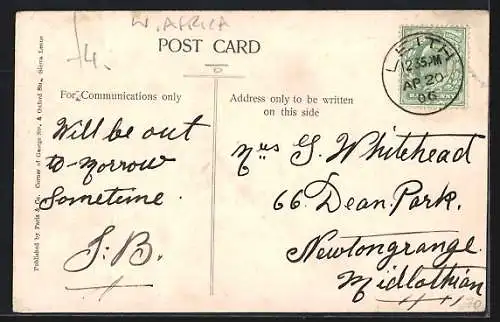 W. AFRICA
/4.
POST CARD
LEITH
12.35 PM
AP 20
06
For Communications only
Address only to be written
on this side
Will be out
to-morrow
Sometime.
J. B.
Mrs G. Whitehead
66 Dean Park.
Newtongrange.
Midlothian
Published by Paris & Co. Corner of George Str. & Oxford Str., Sierra Leone